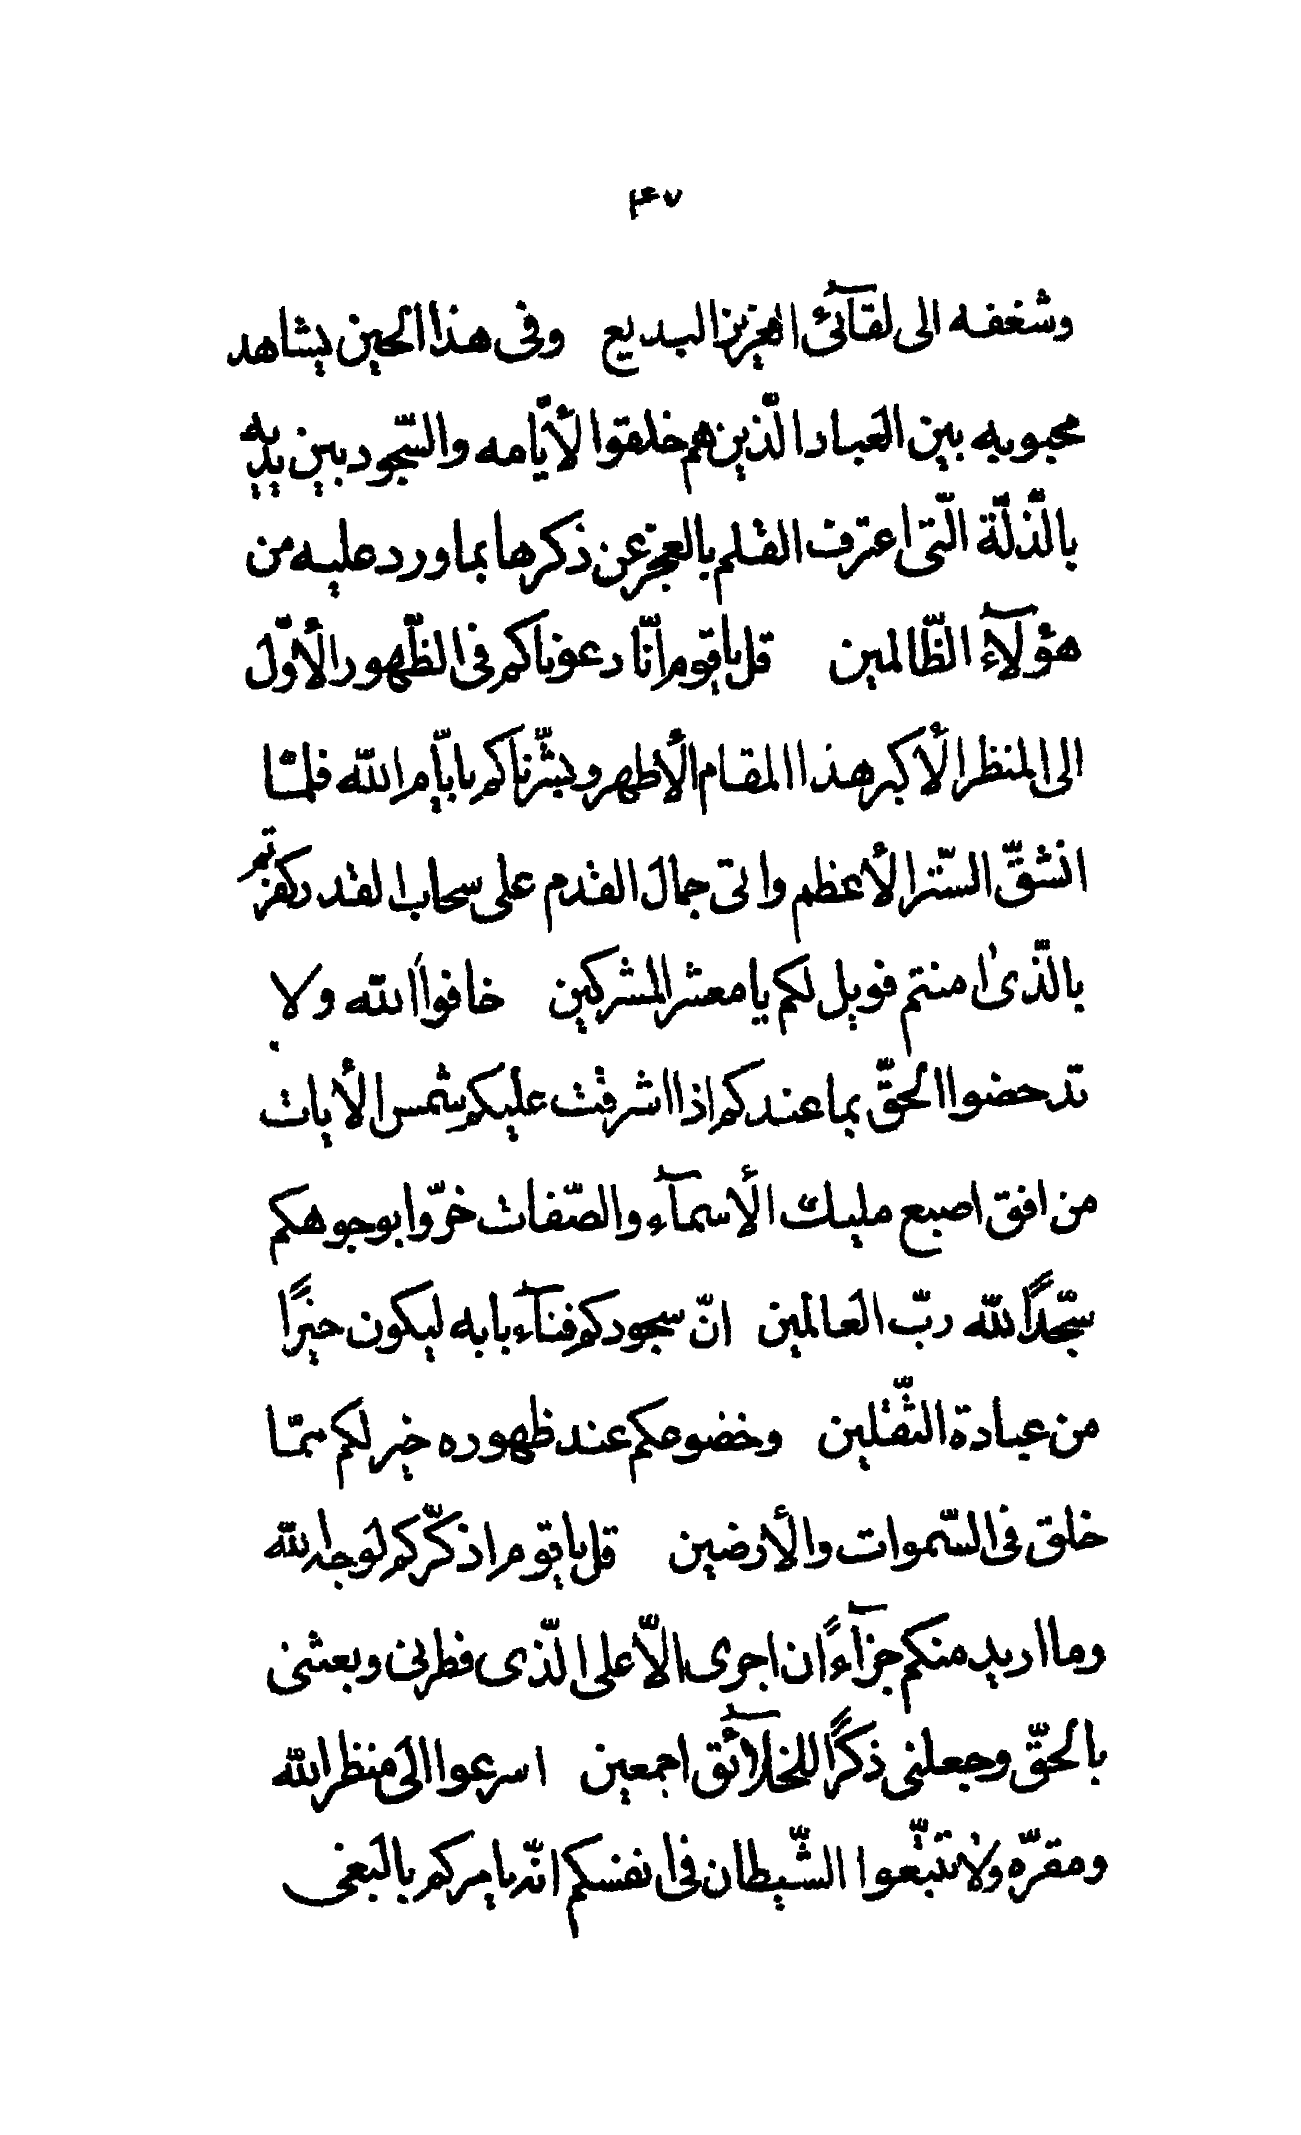 ۴۷
وشغفه الی لقآئی العزیز البدیع وفی هذا الحین یشاهد
محبوبه بین العباد الّذین هم خلقوا لأیّامه والسّجود بین یدیه
بالذّلّة الّتی اعترف القلم بالعجز عن ذکرها بما ورد علیه من
هؤلآء الظّالمین قل یا قوم انّا دعوناکم فی الظّهور الأوّل
الی المنظر الأکبر هذا المقام الأطهر وبشّرناکم بایّام الله فلمّا
انشقّ السّتر الأعظم واتی جمال القدم علی سحاب القدر کفرتم
بالّذی امنتم فویل لکم یا معشر المشرکین خافوا الله ولا
تدحضوا الحقّ بما عندکم اذا اشرقت علیکم شمس الأیات
من افق اصبع ملیك الأسمآء والصّفات خرّوا بوجوهکم
سجّدًا لله ربّ العالمین انّ سجودکم فنآء بابه لیکون خیرًا
من عبادة الثّقلین وخضوعکم عند ظهوره خیر لکم عمّا
خلق فی السّموات والأرضین قل یا قوم اذکّرکم لوجه الله
وما ارید منکم جزآءً ان اجری الّا علی الّذی فطرنی وبعثنی
بالحقّ وجعلنی ذکرًا للخلآئق اجمعین اسرعوا الی منظر الله
ومقرّه ولا تتّبعوا الشّیطان فی انفسکم انّه یامرکم بالبغی